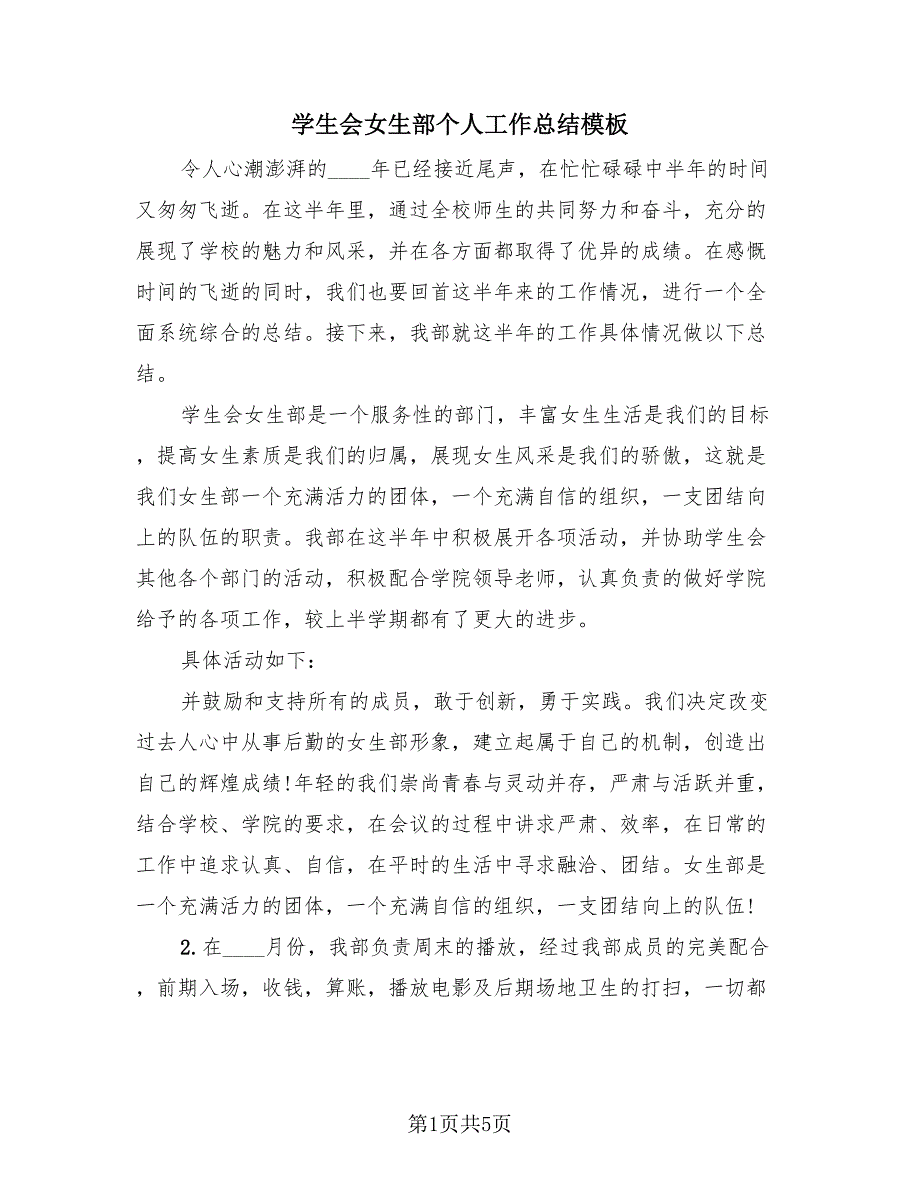 学生会女生部个人工作总结模板
令人心潮澎湃的____年已经接近尾声，在忙忙碌碌中半年的时间
又匆匆飞逝。在这半年里，通过全校师生的共同努力和奋斗，充分的
展现了学校的魅力和风采，并在各方面都取得了优异的成绩。在感慨
时间的飞逝的同时，我们也要回首这半年来的工作情况，进行一个全
面系统综合的总结。接下来，我部就这半年的工作具体情况做以下总
结。
学生会女生部是一个服务性的部门，丰富女生生活是我们的目标
，提高女生素质是我们的归属，展现女生风采是我们的骄傲，这就是
我们女生部一个充满活力的团体，一个充满自信的组织，一支团结向
上的队伍的职责。我部在这半年中积极展开各项活动，并协助学生会
其他各个部门的活动，积极配合学院领导老师，认真负责的做好学院
给予的各项工作，较上半学期都有了更大的进步。
具体活动如下：
并鼓励和支持所有的成员，敢于创新，勇于实践。我们决定改变
过去人心中从事后勤的女生部形象，建立起属于自己的机制，创造出
自己的辉煌成绩!年轻的我们崇尚青春与灵动并存，严肃与活跃并重，
结合学校、学院的要求，在会议的过程中讲求严肃、效率，在日常的
工作中追求认真、自信，在平时的生活中寻求融洽、团结。女生部是
一个充满活力的团体，一个充满自信的组织，一支团结向上的队伍!
2.在____月份，我部负责周末的播放，经过我部成员的完美配合
，前期入场，收钱，算账，播放电影及后期场地卫生的打扫，一切都
第1页共5页